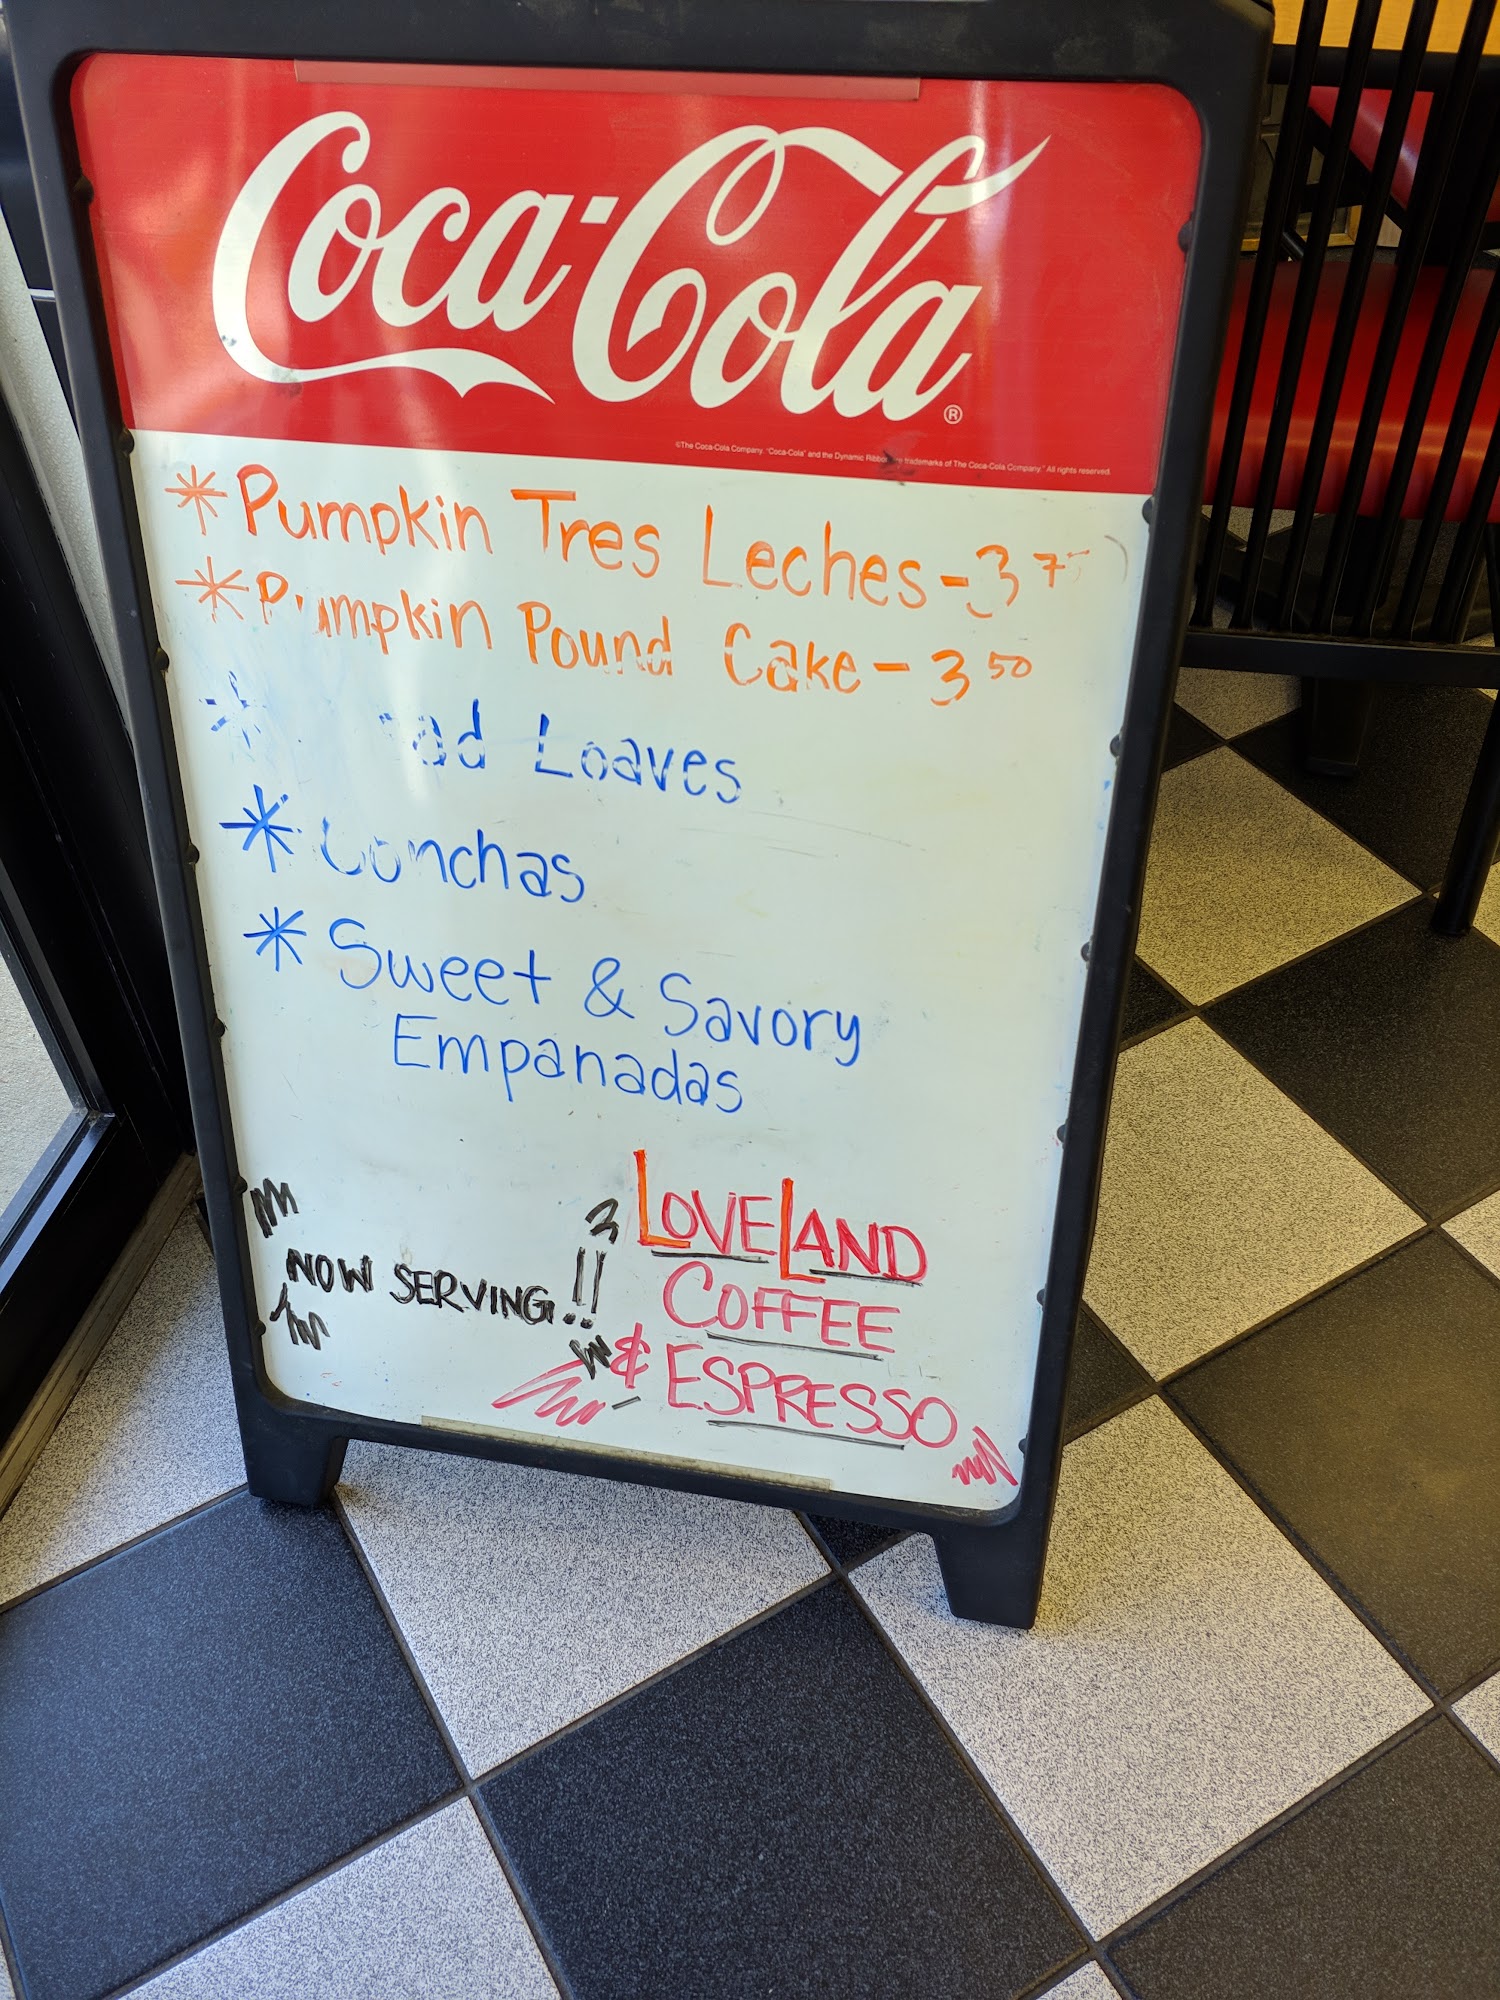 Coca-Cola®
©The Coca-Cola Company. "Coca-Cola" and the Dynamic Ribbon are trademarks of The Coca-Cola Company." All rights reserved.
* Pumpkin Tres Leches - 3 75
* Pumpkin Pound Cake - 3 50
* Loaves
* Conchas
* Sweet & Savory
Empanadas
NOW SERVING!!
LOVELAND
COFFEE
& ESPRESSO